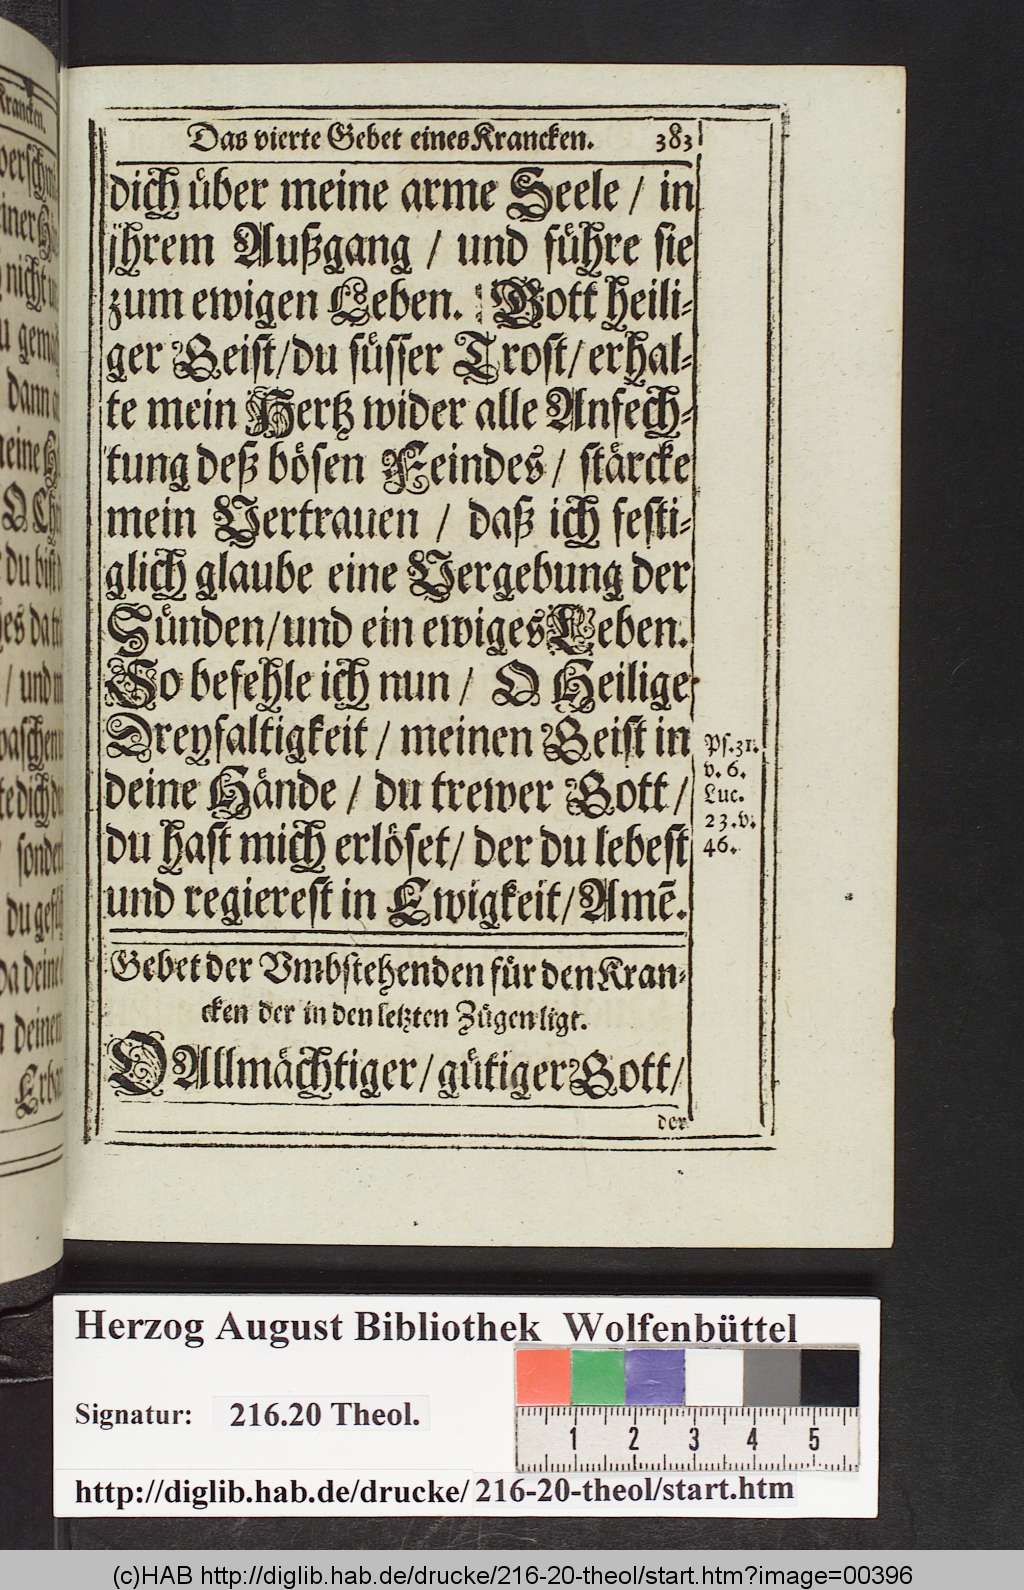 Das vierte Gebet eines Krancken. 383
dich über meine arme Seele / in
jhrem Außgang / und führe sie
zum ewigen Leben. Gott heili-
ger Geist/du süsser Trost/ erhal-
te mein Hertz wider alle Anfech-
tung deß bösen Feindes / stärcke
mein Vertrauen / daß ich festi-
glich glaube eine Vergebung der
Sünden/und ein ewiges Leben.
So befehle ich nun / O Heilige
Dreyfaltigkeit / meinen Geist in
deine Hände / du trewer Gott /
du hast mich erlöset/ der du lebest
und regierest in Ewigkeit/Amē.
Ps.31.
v. 6.
Luc.
23.v.
46.
Gebet der Vmbstehenden für den Kran-
cken der in den letzten Zügen ligt.
O Allmächtiger/gütiger Gott/
der
Krancken.
nicht
dann
O Chri
du bist
/ und
sondern
deinem
Herzog August Bibliothek Wolfenbüttel
Signatur: 216.20 Theol.
1 2 3 4 5
http://diglib.hab.de/drucke/216-20-theol/start.htm
(c)HAB http://diglib.hab.de/drucke/216-20-theol/start.htm?image=00396